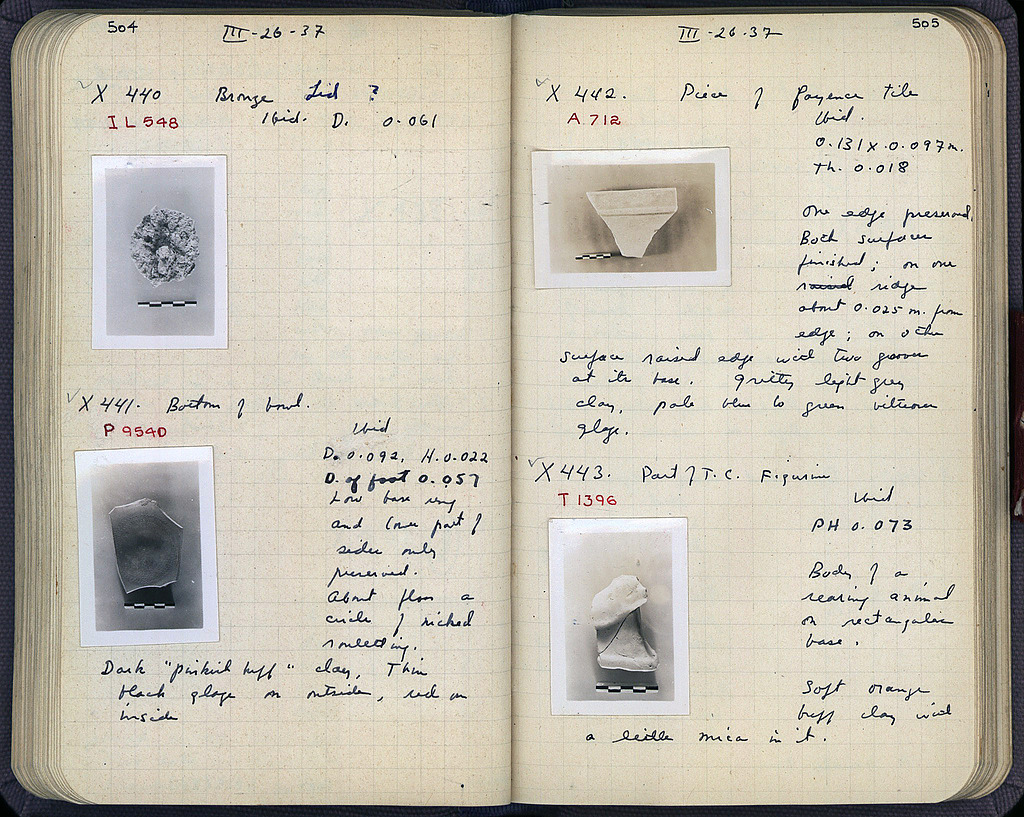 504
III-26-37
X 440 Bronze Lid ?
IL 548
Ibid. D. 0.061
X 441. Bottom of bowl.
P 9540
Ibid
D. 0.092, H. 0.022
D. of foot 0.057
Low base ring
and lower part of
sides only
preserved.
About floor a
circle of nicked
rouletting.
Dark "pinkish buff" clay, Thin
black glaze on outside, red on
inside
505
III-26-37
X 442. Piece of fayence tile
A 712
Ibid.
0.131 x 0.097 m.
Th. 0.018
One edge preserved.
Both surfaces
finished; on one
raised ridge
about 0.025 m. from
edge; on other
surface raised edge with two grooves
at its base. Gritty light grey
clay, pale blue to green vitreous
glaze.
X 443. Part of T.C. Figurine
T 1396
Ibid
PH 0.073
Body of a
rearing animal
on rectangular
base.
Soft orange
buff clay with
a little mica in it.